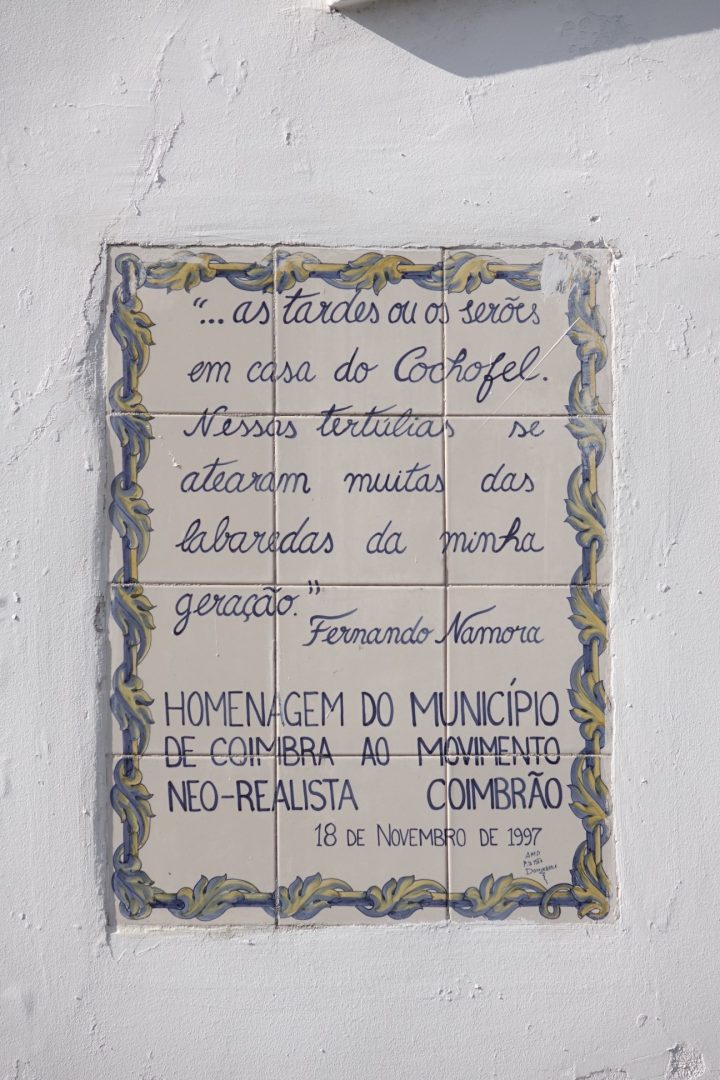 "... as tardes ou os serões
em casa do Cochofel.
Nessas tertúlias se
atearam muitas das
labaredas da minha
geração."
Fernando Namora
HOMENAGEM DO MUNICÍPIO
DE COIMBRA AO MOVIMENTO
NEO-REALISTA COIMBRÃO
18 DE NOVEMBRO DE 1997